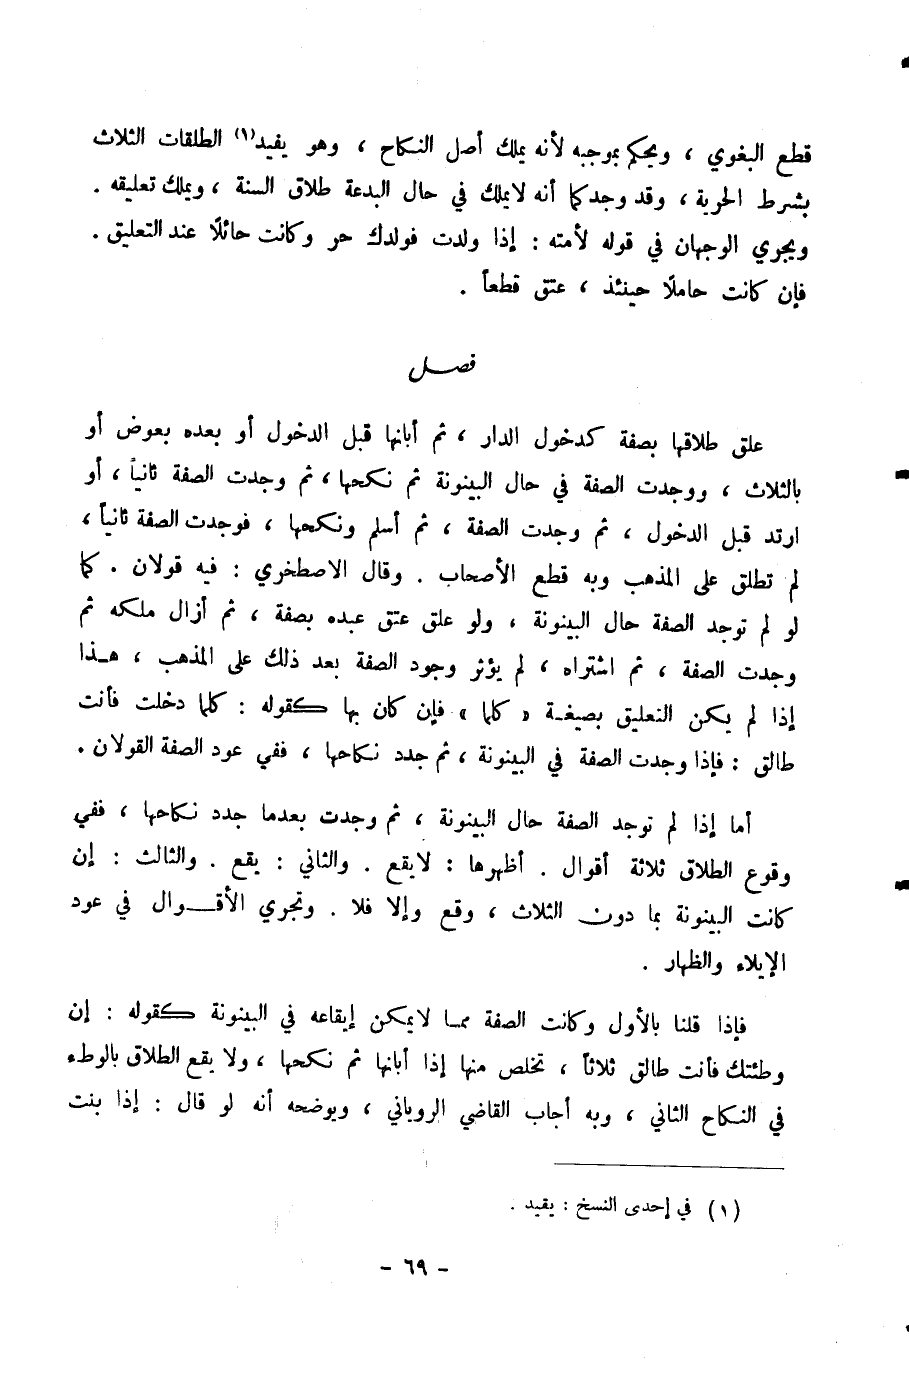 قطع البغوي ، ويحكم بموجبه لأنه يملك أصل النكاح ، وهو يفيد(١) الطلقات الثلاث
بشرط الحرية ، وقد وجد كما أنه لايملك في حال البدعة طلاق السنة ، ويملك تعليقه .
ويجري الوجهان في قوله لأمته : إذا ولدت فولدك حر وكانت حائلًا عند التعليق .
فإن كانت حاملًا حينئذ ، عتق قطعاً .
فصـل
علق طلاقها بصفة كدخول الدار ، ثم أبانها قبل الدخول أو بعده بعوض أو
بالثلاث ، ووجدت الصفة في حال البينونة ثم نكحها ، ثم وجدت الصفة ثانياً ، أو
ارتد قبل الدخول ، ثم وجدت الصفة ، ثم أسلم ونكحها ، فوجدت الصفة ثانياً ،
لم تطلق على المذهب وبه قطع الأصحاب . وقال الاصطخري : فيه قولان . كما
لو لم توجد الصفة حال البينونة ، ولو علق عتق عبده بصفة ، ثم أزال ملكه ثم
وجدت الصفة ، ثم اشتراه ، لم يؤثر وجود الصفة بعد ذلك على المذهب ، هـذا
إذا لم يكن التعليق بصيغـة « كلما » فإن كان بها كقوله : كلما دخلت فأنت
طالق : فإذا وجدت الصفة في البينونة ، ثم جدد نكاحها ، ففي عود الصفة القولان .
أما إذا لم توجد الصفة حال البينونة ، ثم وجدت بعدما جدد نكاحها ، ففي
وقوع الطلاق ثلاثة أقوال . أظهرها : لايقع . والثاني : يقع . والثالث : إن
كانت البينونة بما دون الثلاث ، وقع وإلا فلا . وتجري الأقـوال في عود
الإيلاء والظهار .
فإذا قلنا بالأول وكانت الصفة ممـا لايمكن إيقاعه في البينونة كقوله : إن
وطئتك فأنت طالق ثلاثاً ، تخلص منها إذا أبانها ثم نكحها ، ولا يقع الطلاق بالوطء
في النكاح الثاني ، وبه أجاب القاضي الروياني ، ويوضحه أنه لو قال : إذا بنت
(١) في إحدى النسخ : يقيد .
- ٦٩ -